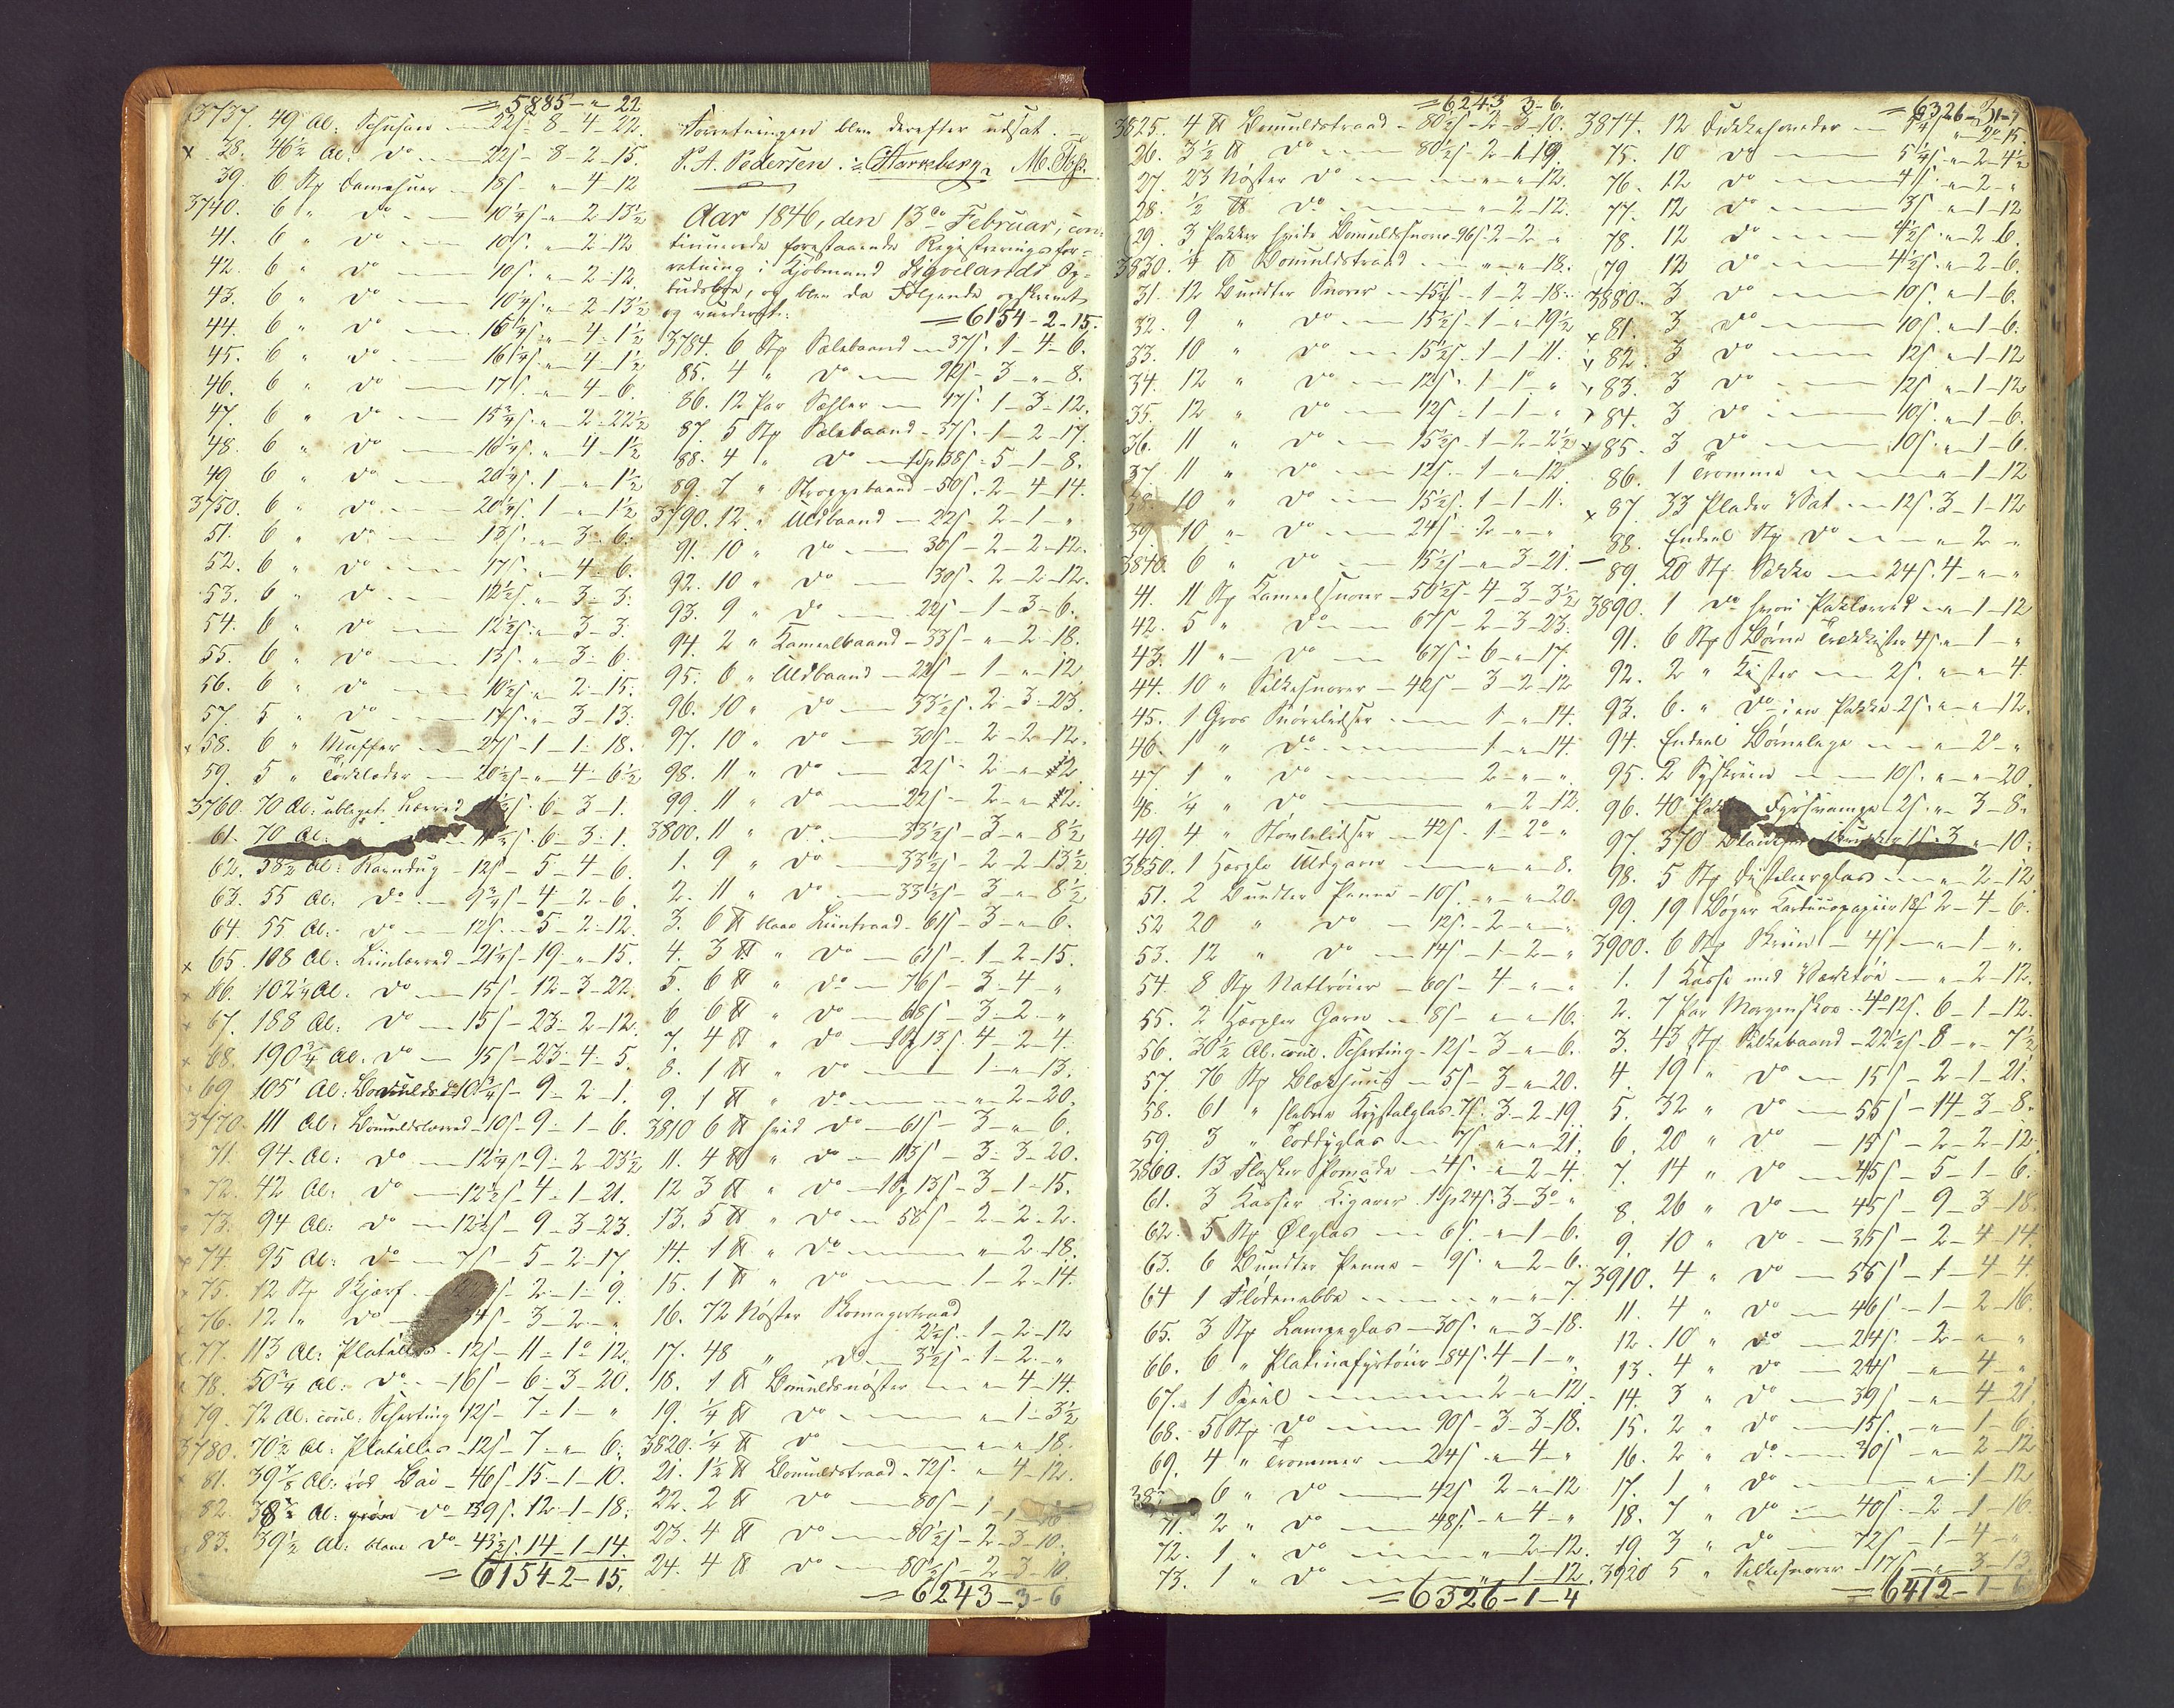 = 5885 - " - 22
3737. 49 Al: — 22ſ - 8 - 4 - 22.
x 38. 46½ Al: Do — 22ſ - 8 - 2 - 15.
39. 6 Stp — 18ſ - " - 4 - 12
3740. 6 " Do — 10¼ſ - " - 2 - 13½
41. 6 " Do — 10ſ - " - 2 - 12
42. 6 " Do — 10ſ - " - 2 - 12.
43. 6 " Do — 10¼ſ - " - 2 - 13½
44. 6 " Do — 16¼ſ - " - 4 - 1½
45. 6 " Do — 16¼ſ - " - 4 - 1½
46. 6 " Do — 17ſ - " - 4 - 6.
47. 6 " Do — 15¾ſ - " - 2 - 22½
48. 6 " Do — 16¼ſ - " - 4 - 1½
49. 6 " Do — 20¼ſ - 1 - " - 1½
3750. 6 " Do — 20¼ſ - 1 - " - 1½
51. 6 " Do — 13ſ - " - 3 - 6.
52. 6 " Do — 17ſ - " - 4 - 6.
53. 6 " Do — 12½ſ - " - 3 - 3.
54. 6 " Do — 12½ſ - " - 3 - 3.
55. 6 " Do — 13ſ - " - 3 - 6.
56. 6 " Do — 10½ſ - " - 2 - 15.
57. 5 " Do — 17ſ - " - 3 - 13.
x 58. 6 " Muffer — 27ſ - 1 - 1 - 18.
59. 5 " Tørklæder — 20½ſ - " - 4 - 6½
3760. 70 Al: ubleget Lærred — 6 - 3 - 1.
61. 70 Al: — 6 - 3 - 1.
62. 58½ Al: Ravndug — 12ſ - 5 - 4 - 6.
63. 55 Al: Do — 9¾ſ - 4 - 2 - 6.
64. 55 Al: Do — 12ſ - 5 - 2 - 12.
x 65. 108 Al: Linlærred — 21¼ſ - 19 - " - 15.
x 66. 102¼ Al: Do — 15ſ - 12 - 3 - 22.
x 67. 188 Al: Do — 15ſ - 23 - 2 - 12.
x 68. 190¾ Al: Do — 15ſ - 23 - 4 - 5.
69. 105 Al: Bomuldsdo 10¾ſ - 9 - 2 - 1.
3770. 111 Al: Bomuldslærred — 10ſ - 9 - 1 - 6.
71. 94 Al: Do — 12¼ſ - 9 - 2 - 23½
72. 42 Al: Do — 12½ſ - 4 - 1 - 21.
73. 94 Al: Do — 12½ſ - 9 - 3 - 23.
x 74. 95 Al: Do — 7ſ - 5 - 2 - 17.
x 75. 12 Stp Skjærf — 2 - 1 - 9.
x 76. 12 " Do — 34ſ - 3 - 2 - "
x 77. 113 Al: Platilles - 12ſ - 11 - 1 - 12.
x 78. 50¾ Al: Do — 16ſ - 6 - 3 - 20.
79. 72 Al: coul: Schirting 12ſ - 7 - 1 - "
3780. 70½ Al: Platilles - 12ſ - 7 - " - 6.
x 81. 39⅞ Al: rød Bai - 46ſ - 15 - 1 - 10.
82. 38¾ Al: grøn Do - 39ſ - 12 - 1 - 18.
83. 39½ Al: blaae Do - 43½ſ - 14 - 1 - 14.
= 6154 - 2 - 15.
Forretningen blev derefter udsat.
P. A. Pedersen. Starkeberg.
Aar 1846, den 13de Februar, con-
tinuerede forestaaende Registreringsfor-
retning i Kjøbmand Sigvelands Op-
budsboe, og blev da Følgende opskrevet
og vurderet:
= 6154 - 2 - 15.
3784. 6 Stp Selebaand — 37ſ - 1 - 4 - 6.
85. 4 " Do — 92ſ - 3 - " - 8.
86. 12 Par — 17ſ - 1 - 3 - 12.
87. 5 Stp Selebaand - 37ſ - 1 - 2 - 17.
88. 4 " Do — 38ſ - 5 - 1 - 8.
89. 7 " Stroppebaand - 50ſ - 2 - 4 - 14.
3790. 12 " Uldbaand — 22ſ - 2 - 1 - "
91. 10 " Do — 30ſ - 2 - 2 - 12.
92. 10 " Do — 30ſ - 2 - 2 - 12.
93. 9 " Do — 22ſ - 1 - 3 - 6.
94. 2 " Kameelbaand - 33ſ - " - 2 - 18.
95. 6 " Uldbaand — 22ſ - 1 - " - 12
96. 10 " Do — 33½ſ - 2 - 3 - 23.
97. 10 " Do — 30ſ - 2 - 2 - 12.
98. 11 " Do — 22ſ - 2 - " - 2
99. 11 " Do — 22ſ - 2 - " - 2.
3800. 11 " Do — 33½ſ - 3 - " - 8½
1. 9 " Do — 33½ſ - 2 - 2 - 13½
2. 11 " Do — 33½ſ - 3 - " - 8½
3. 6 ℔ blaae Liintraad - 61ſ - 3 - " - 6.
4. 3 ℔ " Do — 61ſ - 1 - 2 - 15.
5. 6 ℔ " Do — 76ſ - 3 - 4 - "
6. 6 ℔ " Do — 68ſ - 3 - 2 - "
7. 4 ℔ " Do — 13ſ 4 - 2 - 4.
8. 1 ℔ " Do — 1 - " - 13.
9. 1 ℔ " Do — " - 2 - 20.
3810 6 ℔ hvid Do — 61ſ - 3 - " - 6.
11. 4 ℔ " Do — 113ſ - 3 - 3 - 20.
12. 3 ℔ " Do — 13ſ - 3 - 1 - 15.
13. 5 ℔ " Do — 58ſ - 2 - 2 - 2.
14. 1 ℔ " Do — " - 2 - 18.
15. 1 ℔ " Do — 1 - 2 - 14.
16. 72 Nøster Skomagertraad
2½ſ - 1 - 2 - 12
17. 48 " Do — 3½ſ - 1 - 2 - "
18. 1 ℔ Bomuldsnøster — " - 4 - 14.
19. ¼ ℔ Do — " - 1 - 3½
3820. ¼ ℔ Do — " - " - 18.
21. 1½ ℔ Bomuldstraad - 72ſ - " - 4 - 12.
22. 2 ℔ Do — 80ſ - 1 - 1
23. 4 ℔ Do — 80½ſ - 2 - 3 - 10.
24. 4 ℔ Do — 80½ſ - 2 - 3 - 10.
= 6243 - 3 - 6
= 6243 3 - 6.
3825. 4 ℔ Bomuldstraad - 80½ſ - 2 - 3 - 10.
26. 3½ ℔ Do — 80½ſ - 2 - 1 - 19.
27. 23 Nøster Do — " - " - 12.
28. ½ ℔ Do — " - 2 - 12.
29. 3 Pakker hvide Bomuldssnore - 96ſ 2 - 2 - "
3830. ¼ ℔ Bomuldstraad — " - " - 18.
31. 12 Bundter Snorer — 15½ſ - 1 - 2 - 18.
32. 9 " Do — 15½ſ - 1 - " - 19½
33. 10 " Do — 15½ſ - 1 - 1 - 11.
34. 12 " Do — 12ſ - 1 - 1 - "
35. 12 " Do — 12ſ - 1 - 1 - "
36. 11 " Do — 15½ſ - 1 - 2 - 2½
37. 11 " Do — 12ſ - 1 - " - 12
38. 10 " Do — 15½ſ - 1 - 1 - 11.
39. 10 " Do — 24ſ - 2 - " - "
3840. 6 " Do — 15½ſ - " - 3 - 21.
41. 11 Stp Kameelsnorer - 50½ſ - 4 - 3 - 3½
42. 5 " Do — 67ſ - 2 - 3 - 23.
43. 11 " Do — 67ſ - 6 - " - 17.
44. 10 " Silkesnorer - 42ſ - 3 - 2 - 12
45. 1 Gros Snørelidser — 1 - " - 14.
46. 1 " Do — 1 - " - 14.
47. 1 " Do — 2 - " - "
48. ¼ " Do — " - 2 - 12.
49. 4 " Støvlelidser — 42ſ - 1 - 2 - "
3850. 1 Hespe Uldgarn — " - " - 8.
51. 2 Bundter Penne - 10ſ - " - " - 20.
52. 20 " Do — 12ſ - 2 - " - "
53. 12 " Do — 14ſ - 1 - 2 - "
54. 8 Stp Nattrøier — 60ſ - 4 - " - "
55. 2 Garn — 8ſ - " - " - 16.
56. 30½ Al: coul: Schirting - 12ſ - 3 - " - 6.
57. 76 Stp Blækhuus — 5ſ - 3 - " - 20.
58. 61 " slebne Krystalglas - 7ſ - 3 - 2 - 19.
59. 3 " Toddyglas — 7ſ - " - " - 21.
3860. 13 Flasker Pomade — 4ſ - " - 2 - 4.
61. 3 Kasser Cigarer 24ſ - 3 - 3 - "
62. 5 Stp Ølglas — 6ſ - " - 1 - 6.
63. 6 Bundter Penne - 9ſ - " - 2 - 6.
64. 1 Flødenebbe — " - " - 7.
65. 3 Stp Lampeglas — 30ſ - " - 3 - 18.
66. 6 " Platinafyrtøier - 84ſ - 4 - 1 - "
67. 1 Speil — 2 - " - 12.
68. 5 Stp Do — 90ſ - 3 - 3 - 18.
69. 4 " Trommer — 24ſ - " - 4 - "
6 " Do — 42ſ - 2 - " - 12
71. 2 " Do — 48ſ - " - 4 - "
72. 1 " Do — " - 2 - 12.
73. 1 " Do — " - 1 - 12.
= 6326 - 1 - 4
= 6326
3874. 12 — " - 2 - 15.
75. 10 Do — 5¼ſ - " - 2 - 4½
76. 12 Do — 4ſ - " - 2 - "
77. 12 Do — 3ſ - " - 1 - 12
78. 12 Do — 4½ſ - " - 2 - 6.
79. 12 Do — 4½ſ - " - 2 - 6.
3880. 3 Do — 10ſ - " - 1 - 6.
x 81. 3 Do — 10ſ - " - 1 - 6.
x 82. 3 Do — 12ſ - " - 1 - 12
x 83. 3 Do — 12ſ - " - 1 - 12
x 84. 3 Do — 10ſ - " - 1 - 6.
x 85. 3 Do — 10ſ - " - 1 - 6.
86. 1 Tromme — " - 1 - 12
x 87. 33 Plader Vat — 12ſ - 3 - 1 - 12
88. Endeel Stp Do — " - 2 - "
89. 20 Stp Sække — 24ſ - 4 - " - "
3890. 1 Do Paklærred — " - 1 - 12
91. 6 Stp Børne Trækkister 4ſ - " - 1 - "
92. 2 " Kister — 2ſ - " - " - 4.
93. 6 " Do i en Pakke - 2ſ - " - " - 12.
94. Endeel Børnelege — " - 2 - "
95. 2 Syskriin — 10ſ - " - " - 20.
96. 40 Fyrsvampe - 2ſ - " - 3 - 8.
97. 370 1ſ - 3 - " - 10.
98. 5 Stp Distelleerglas — " - 2 - 12
99. 19 Bøger Karduuspapiir 18ſ - 2 - 4 - 6.
3900. 6 Stp Skriin — 4ſ - " - 1 - "
1. 1 Kasse med Værktøi — " - 2 - 12.
2. 7 Par Morgenskoe 12ſ - 6 - 1 - 12.
3. 43 Stp Silkebaand - 22½ſ - 8 - " - 7½
4. 19 " Do — 15ſ - 2 - 1 - 21.
5. 32 " Do — 55ſ - 14 - 3 - 8.
6. 20 " Do — 15ſ - 2 - 2 - 12.
7. 14 " Do — 45ſ - 5 - 1 - 6.
8. 26 " Do — 45ſ - 9 - 3 - 18.
9. 10 " Do — 35ſ - 2 - 4 - 14.
3910. 4 " Do — 55ſ - 1 - 4 - 4.
11. 4 " Do — 46ſ - 1 - 2 - 16.
12. 10 " Do — 24ſ - 2 - " - "
13. 4 " Do — 24ſ - " - 4 - "
14. 3 " Do — 39ſ - " - 4 - 21.
15. 2 " Do — 15ſ - " - 1 - 6.
16. 2 " Do — 30ſ - " - 2 - 12
17. 1 " Do — " - 1 - 12
18. 7 " Do — 40ſ - 2 - 1 - 16.
19. 3 " Do — 72ſ - 1 - 4 - "
3920. 5 " Silkesnorer - 17ſ - " - 3 - 13
= 6412 - 1 - 6